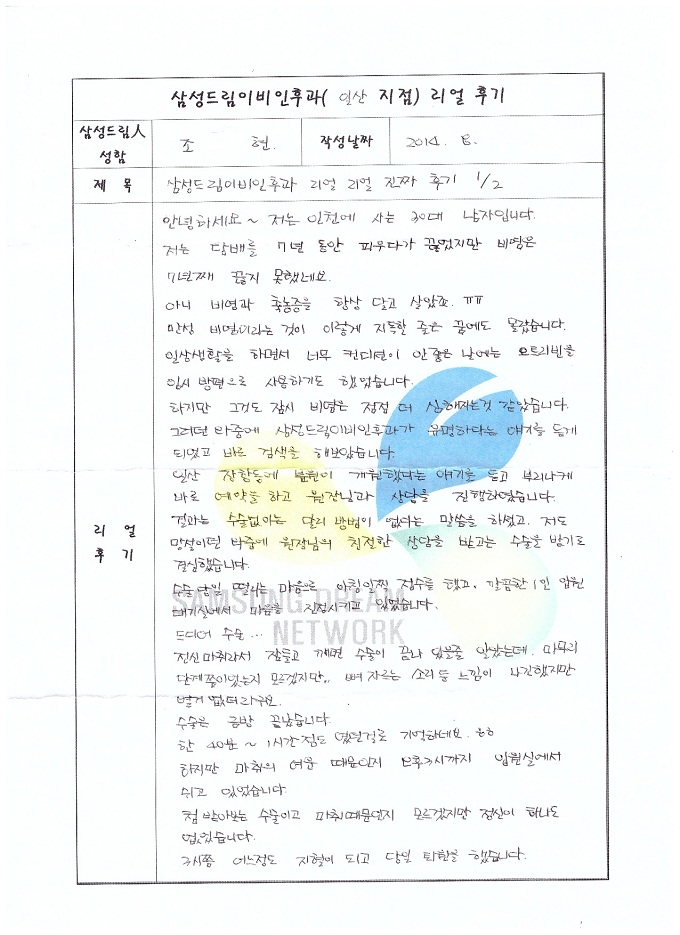 삼성드림이비인후과( 일산 지점) 리얼 후기
삼성드림人 성함
조 현.
작성날짜
2014. 8.
제 목
삼성드림이비인후과 리얼 리얼 진짜 후기 1/2
리 얼
후 기
안녕하세요~ 저는 인천에 사는 30대 남자입니다.
저는 담배를 7년 동안 피우다가 끊었지만 비염은
7년째 끊지 못했네요.
아니 비염과 축농증을 항상 달고 살았죠. ㅠㅠ
만성 비염이라는 것이 이렇게 지독한 줄은 꿈에도 몰랐습니다.
일상생활을 하면서 너무 컨디션이 안 좋은 날에는 오트리빈을
임시 방편으로 사용하기도 했었습니다.
하지만 그것도 잠시 비염은 점점 더 심해지는것 같았습니다.
그러던 와중에 삼성드림이비인후과가 유명하다는 얘기를 듣게
되었고 바로 검색을 해보았습니다.
일산 장항동에 병원이 개원했다는 얘기를 듣고 부리나케
바로 예약을 하고 원장님과 상담을 진행하였습니다.
결과는 수술없이는 달리 방법이 없다는 말씀을 하셨고. 저도
망설이던 와중에 원장님의 친절한 상담을 받고는 수술을 받기로
결심했습니다.
수술 당일 떨리는 마음으로 아침일찍 접수를 했고. 깔끔한 1인 입원
대기실에서 마음을 진정시키고 있었습니다.
드디어 수술...
전신마취라서 잠들고 깨면 수술이 끝나 있을줄 알았는데. 마무리
단계쯤이었는지 모르겠지만.. 뼈 자르는 소리 등 느낌이 나긴했지만
별거 없더라구요.
수술은 금방 끝났습니다.
한 40분~1시간 정도 였던걸로 기억하네요. ㅎㅎ
하지만 마취의 여운 때문인지 오후3시까지 입원실에서
쉬고 있었습니다.
첨 받아보는 수술이고 마취때문인지 모르겠지만 정신이 하나도
없었습니다.
3시쯤 어느정도 지혈이 되고 당일 퇴원을 했습니다.
SAMSUNG DREAM
NETWORK